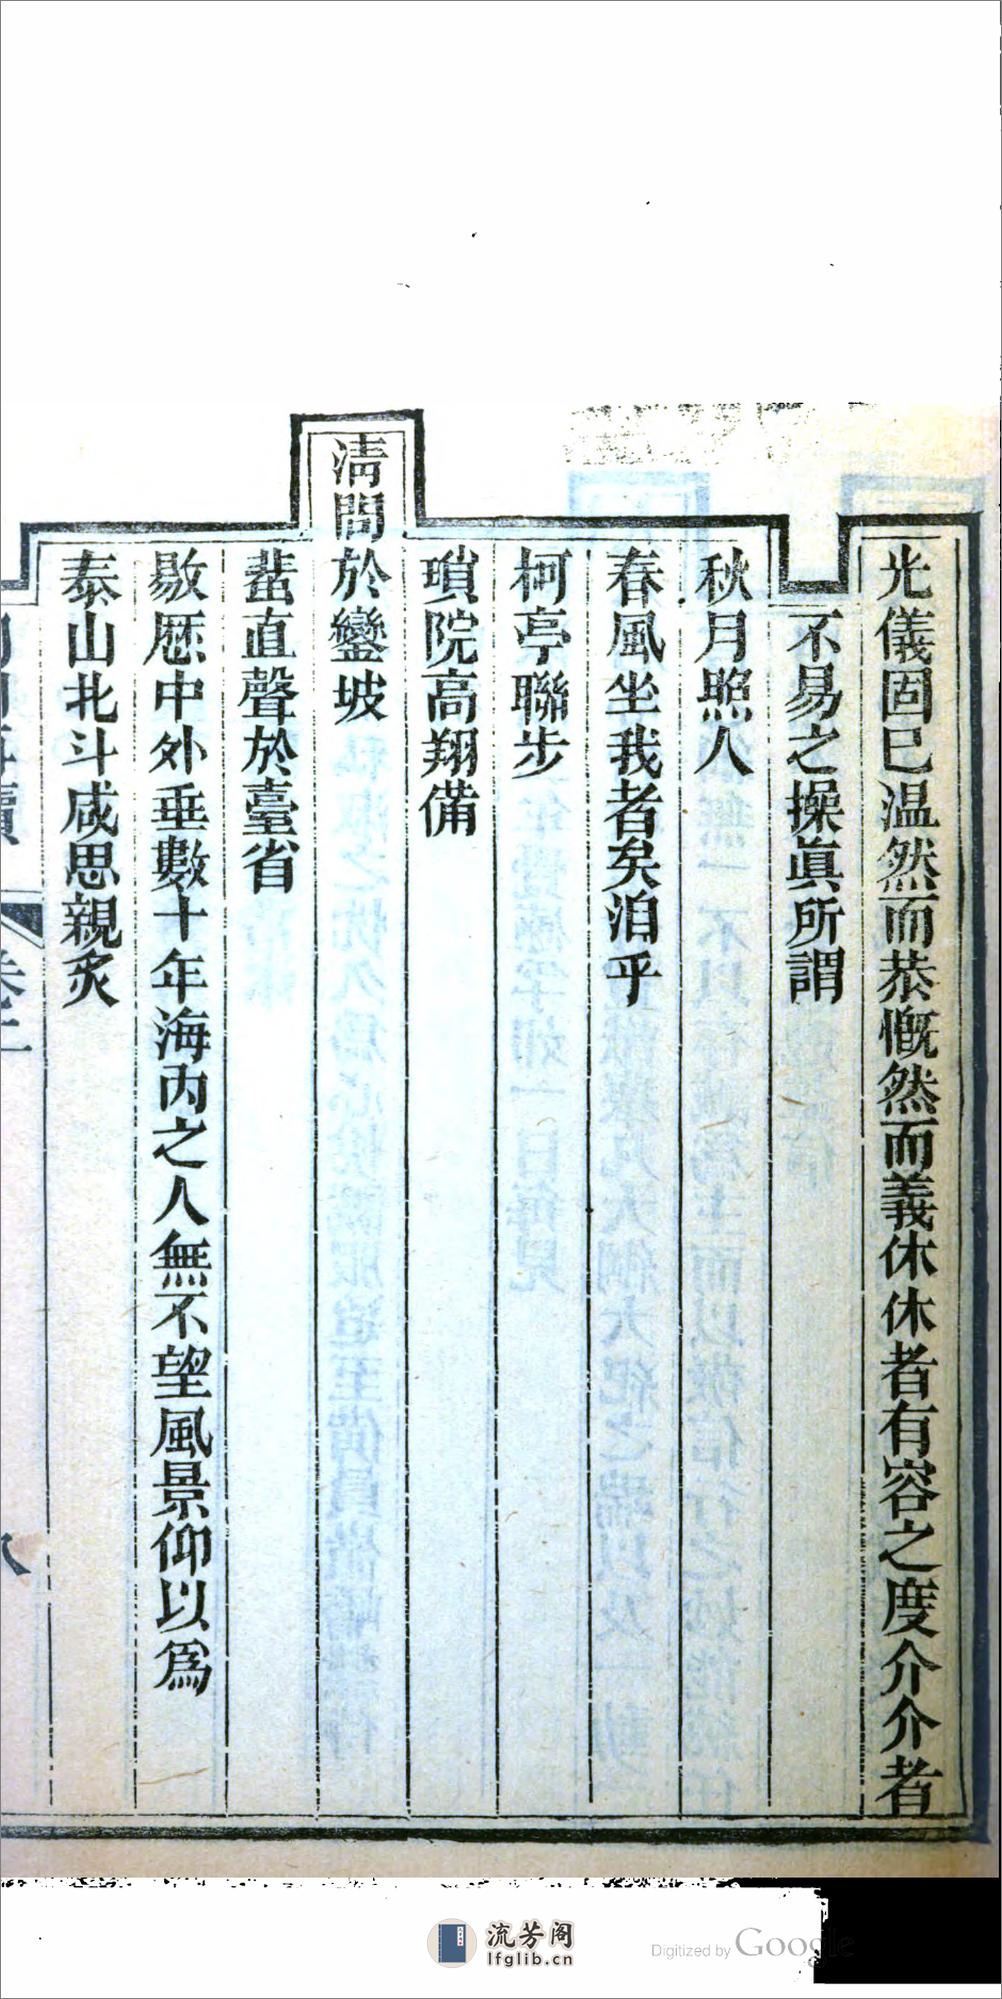 光儀固已温然而恭慨然而義休休者有容之度介介者
不易之操眞所謂
秋月照人
春風坐我者矣洎乎
柯亭聯步
瑣院高翔備
淸問於鑾坡
蜚直聲於臺省
敭歷中外垂數十年海內之人無不望風景仰以爲
泰山北斗咸思親炙
卷二
八
流芳阁
lfglib.cn
Digitized by Google